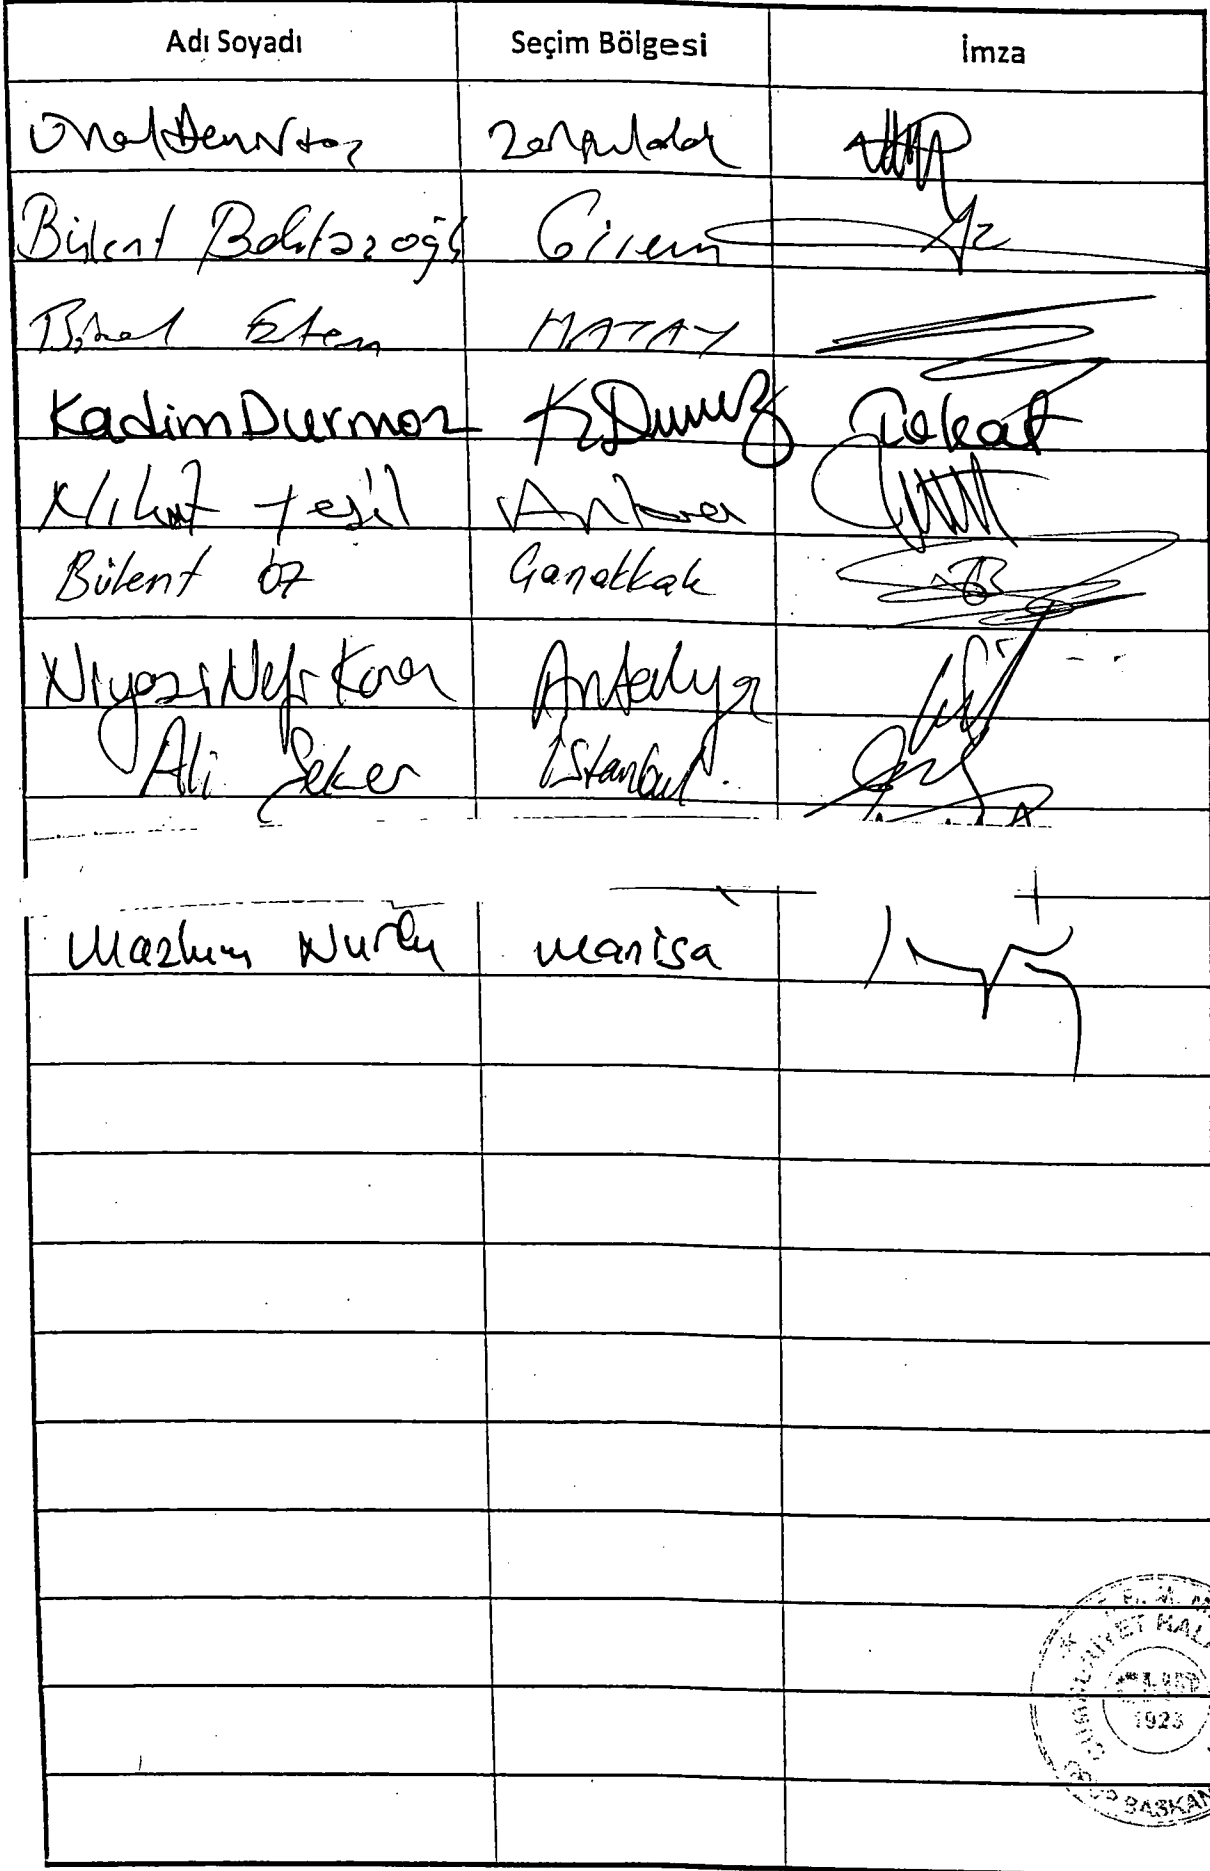 Adı Soyadı Seçim Bölgesi İmza
Ünal Demirtaş Zonguldak
Bülent Bektaşoğlu Giresun
Birol Ertem HATAY
Kadim Durmaz K.Durmaz Tokat
Nihat Yeşil Ankara
Bülent Öz Çanakkale
Niyazi Nefi Kara Antalya
Ali Şeker İstanbul
Mazlum Nurlu Manisa
CUMHURİYET HAL
CHP
1923
GRUP BAŞKAN